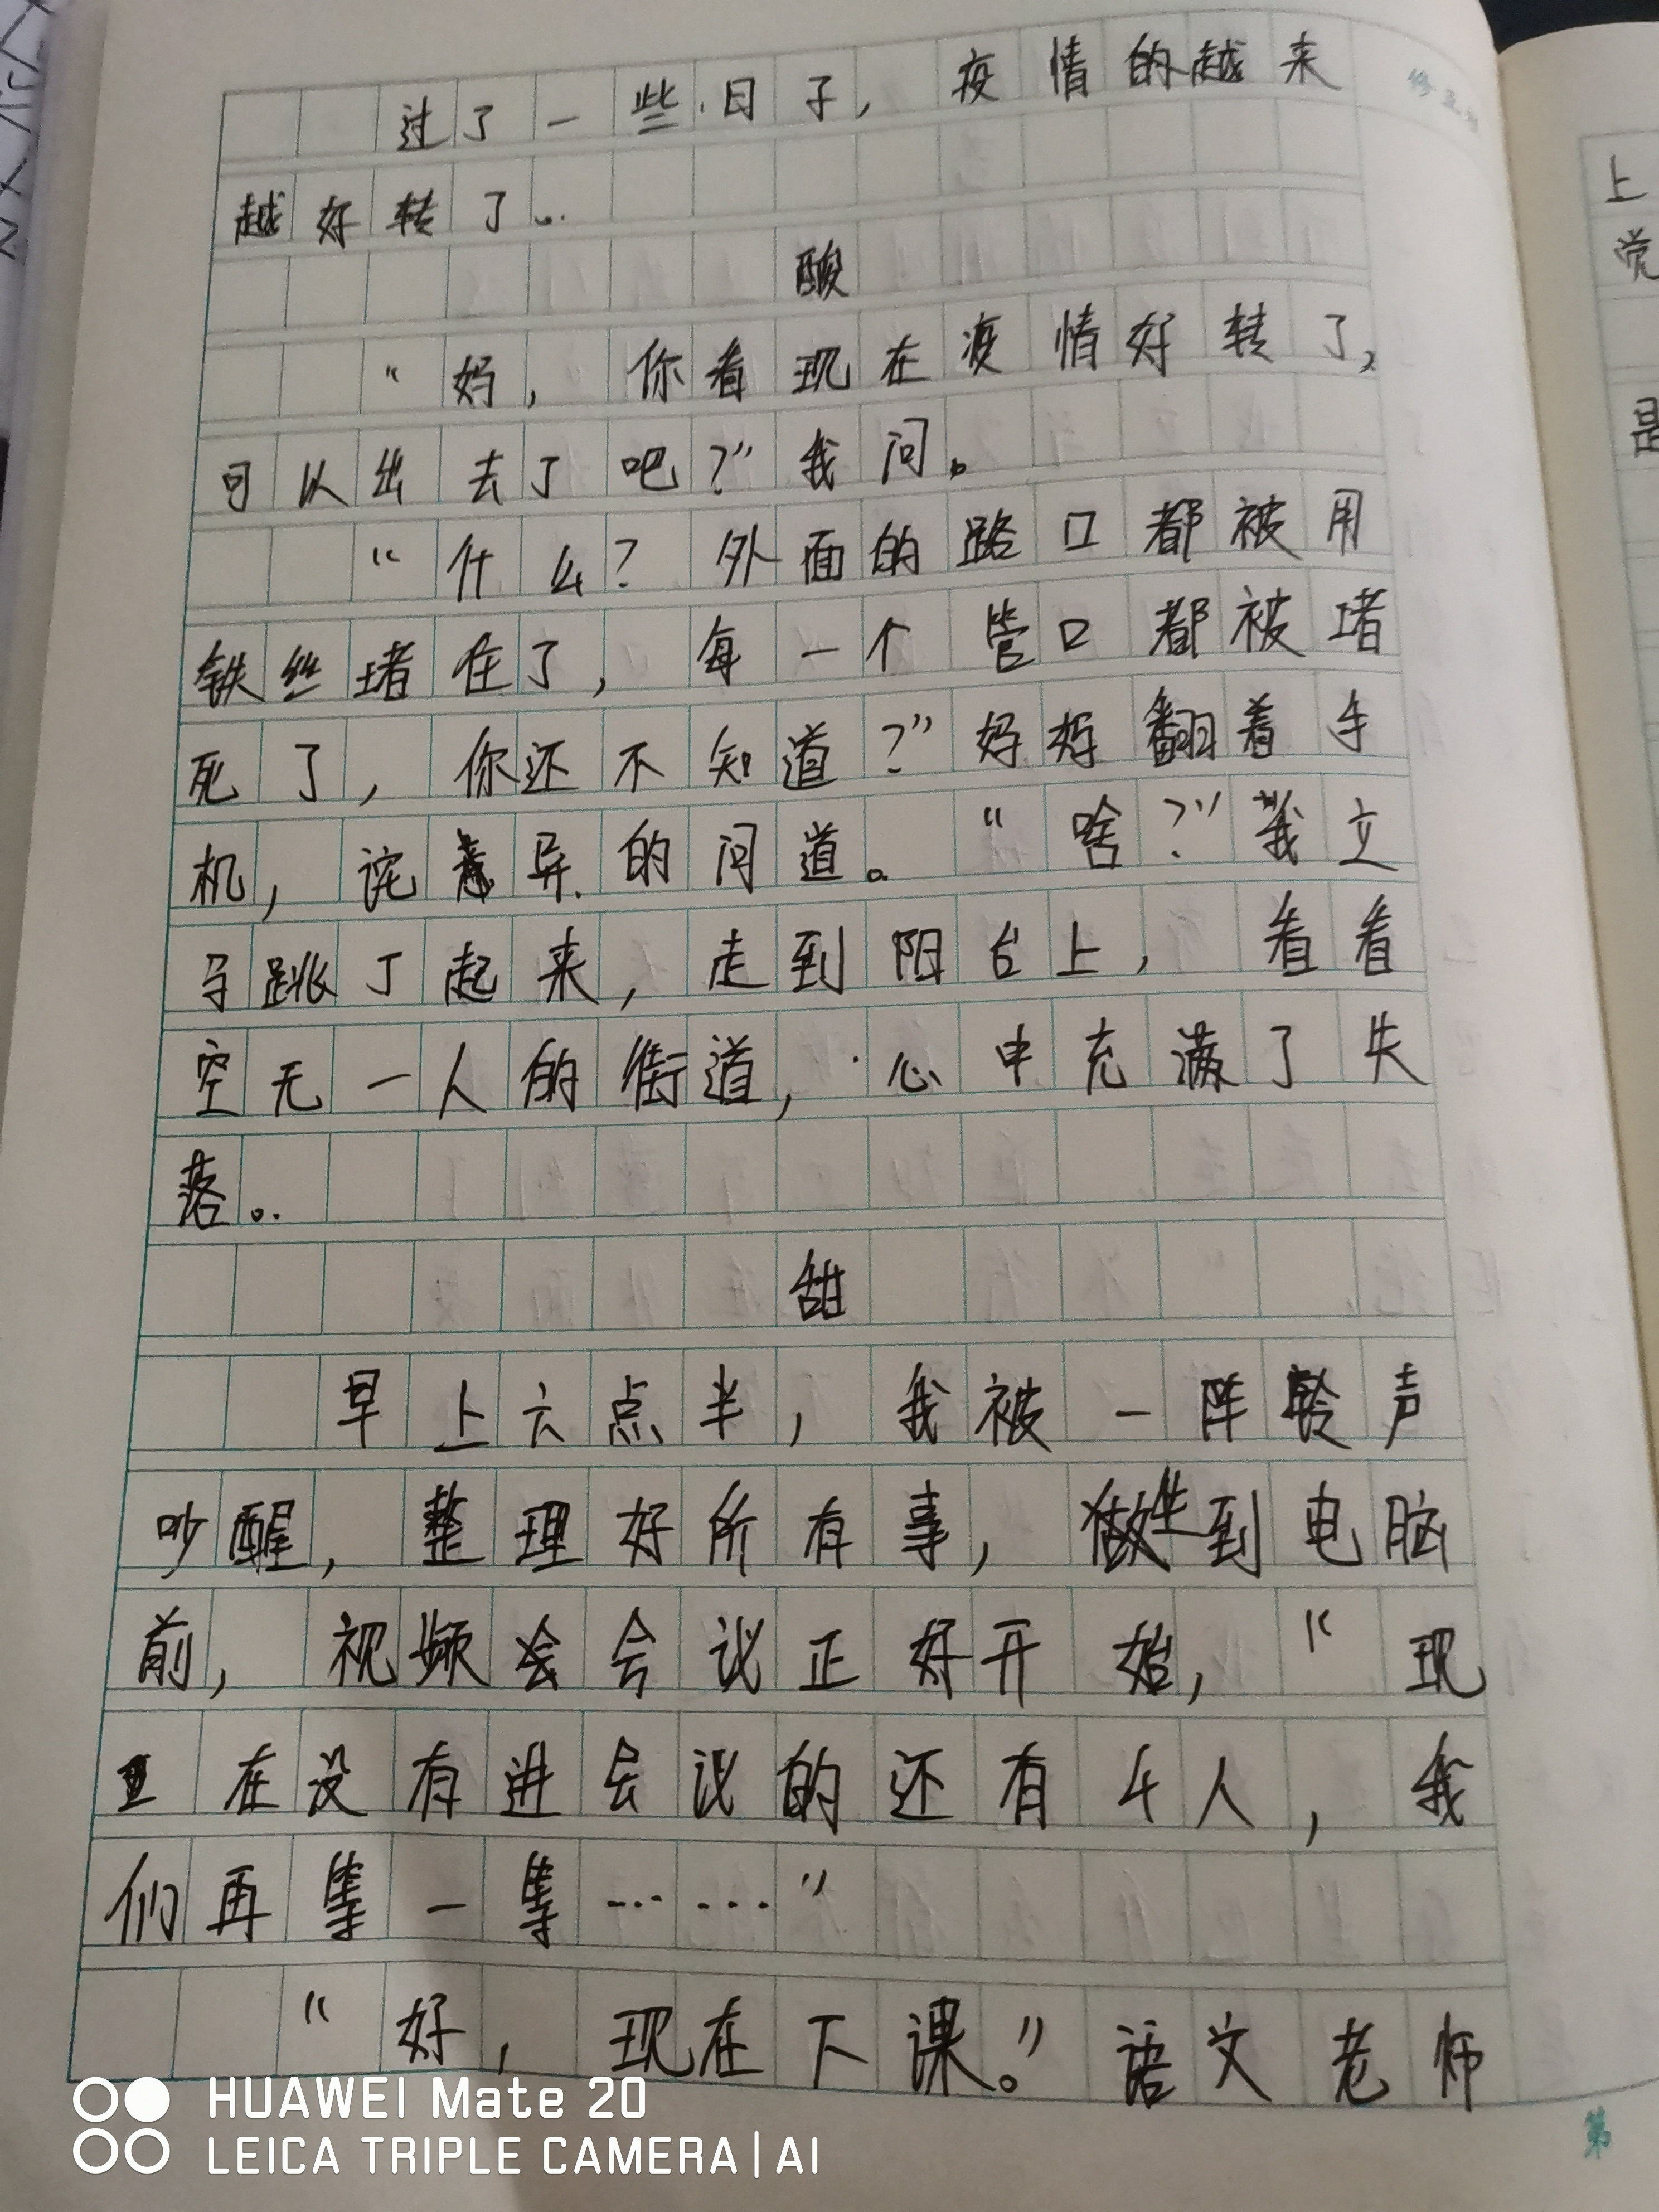 过了一些日子，疫情的越来
越好转了。
酸
“妈，你看现在疫情好转了，
可以出去了吧？”我问。
“什么？外面的路口都被用
铁丝堵在了，每一个管口都被堵
死了，你还不知道？”妈妈翻着手
机，诧异的问道。“啥？”我立
马跳了起来，走到阳台上，看着
空无一人的街道，心中充满了失
落。
甜
早上六点半，我被一阵铃声
吵醒，整理好所有事，坐到电脑
前，视频会会议正好开始，“现
在没有进会议的还有4人，我
们再等一等……”
“好，现在下课。”语文老师
上
党
是
第
HUAWEI Mate 20
LEICA TRIPLE CAMERA | AI